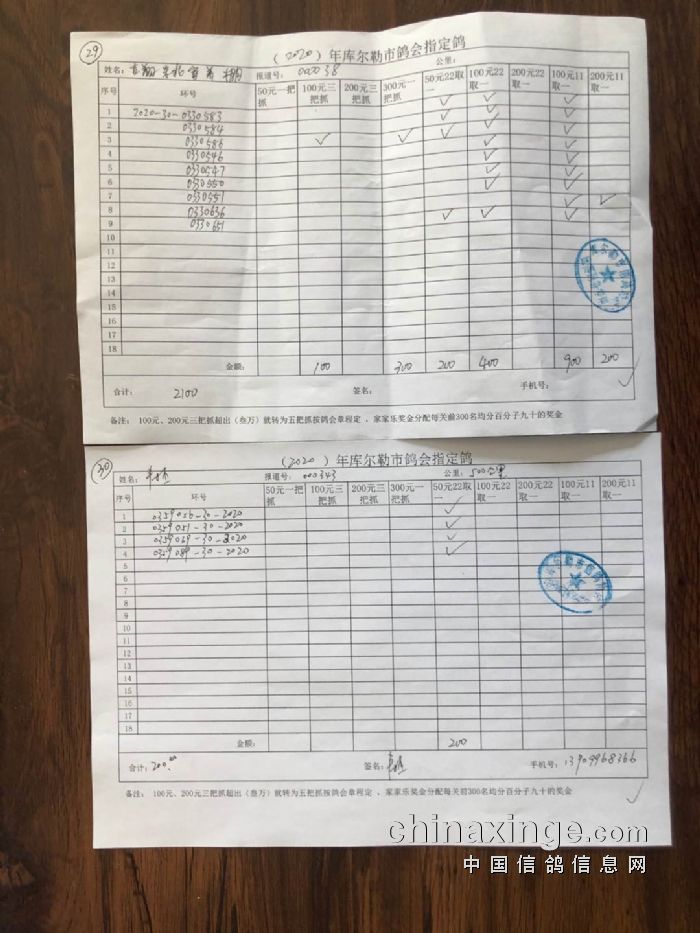 29
(2020)年库尔勒市鸽会指定鸽
姓名: 报道号: 000038 公里:
序号 环号 50元一把抓 100元三把抓 200元三把抓 300元一把抓 50元22取一 100元22取一 200元22取一 100元11取一 200元11取一
1 2020-30-0330583 ✓ ✓ ✓
2 0330584 ✓ ✓ ✓
3 0330586 ✓ ✓ ✓ ✓ ✓
4 0330546 ✓ ✓
5 0330547 ✓ ✓
6 0330550 ✓ ✓
7 0330551 ✓ ✓
8 0330636 ✓ ✓ ✓
9 0330651 ✓
10
11
12
13
14
15
16
17
18
金额: 100 300 200 400 900 200
合计: 2100 签名: 手机号:
备注: 100元、200元三把抓超出(叁万)就转为五把抓按鸽会章程定,家家乐奖金分配每关前300名均分百分子九十的奖金
30
(2020)年库尔勒市鸽会指定鸽
姓名: 报道号: 000343 公里: 500公里
序号 环号 50元一把抓 100元三把抓 200元三把抓 300元一把抓 50元22取一 100元22取一 200元22取一 100元11取一 200元11取一
1 0359056-30-2020 ✓
2 0359051-30-2020 ✓
3 0359069-30-2020 ✓
4 0359089-30-2020 ✓
5
6
7
8
9
10
11
12
13
14
15
16
17
18
金额: 200
合计: 200.00 签名: 手机号: 13909968366
备注: 100元、200元三把抓超出(叁万)就转为五把抓按鸽会章程定,家家乐奖金分配每关前300名均分百分子九十的奖金
chinaxinge.com
中国信鸽信息网